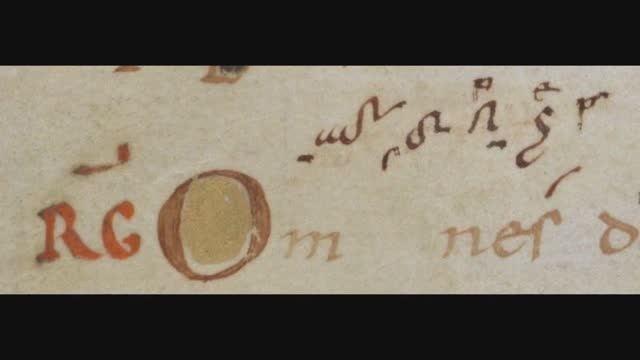 RG Om nes d